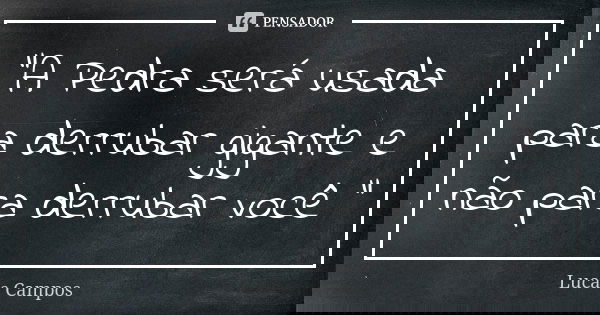 PENSADOR
"A Pedra será usada
para derrubar gigante e
não para derrubar você "
Lucas Campos